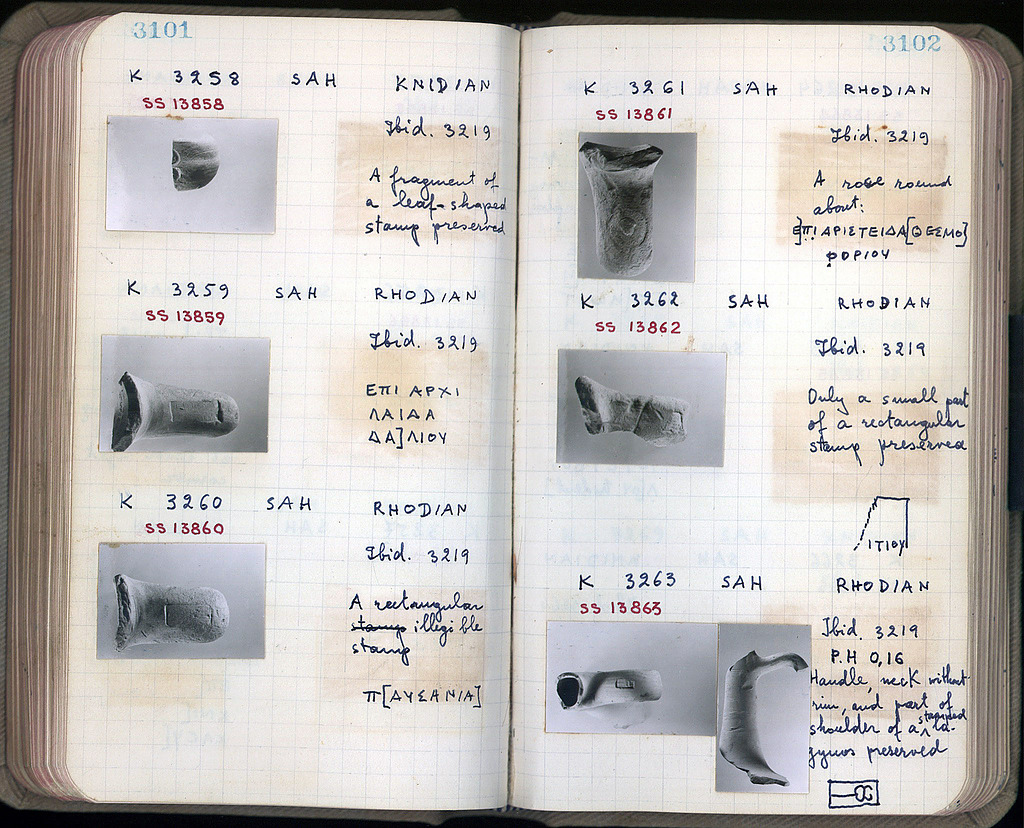 3101
K 3258 SAH KNIDIAN
SS 13858
Ibid. 3219
A fragment of
a leaf-shaped
stamp preserved
K 3259 SAH RHODIAN
SS 13859
Ibid. 3219
ΕΠΙ ΑΡΧΙ
ΛΑΙΔΑ
ΔΑ]ΛΙΟΥ
K 3260 SAH RHODIAN
SS 13860
Ibid. 3219
A rectangular
stamp illegible
stamp
Π[ΑΥΣΑΝΙΑ]
3102
K 3261 SAH RHODIAN
SS 13861
Ibid. 3219
A rose round
about:
Ε]ΠΙ ΑΡΙΣΤΕΙΔΑ[ΘΕΣΜΟ]
ΦΟΡΙΟΥ
K 3262 SAH RHODIAN
SS 13862
Ibid. 3219
Only a small part
of a rectangular
stamp preserved
ΙΤΙΟΥ
K 3263 SAH RHODIAN
SS 13863
Ibid. 3219
P.H 0,16
Handle, neck without
rim, and part of
shoulder of a stamped la-
gynos preserved